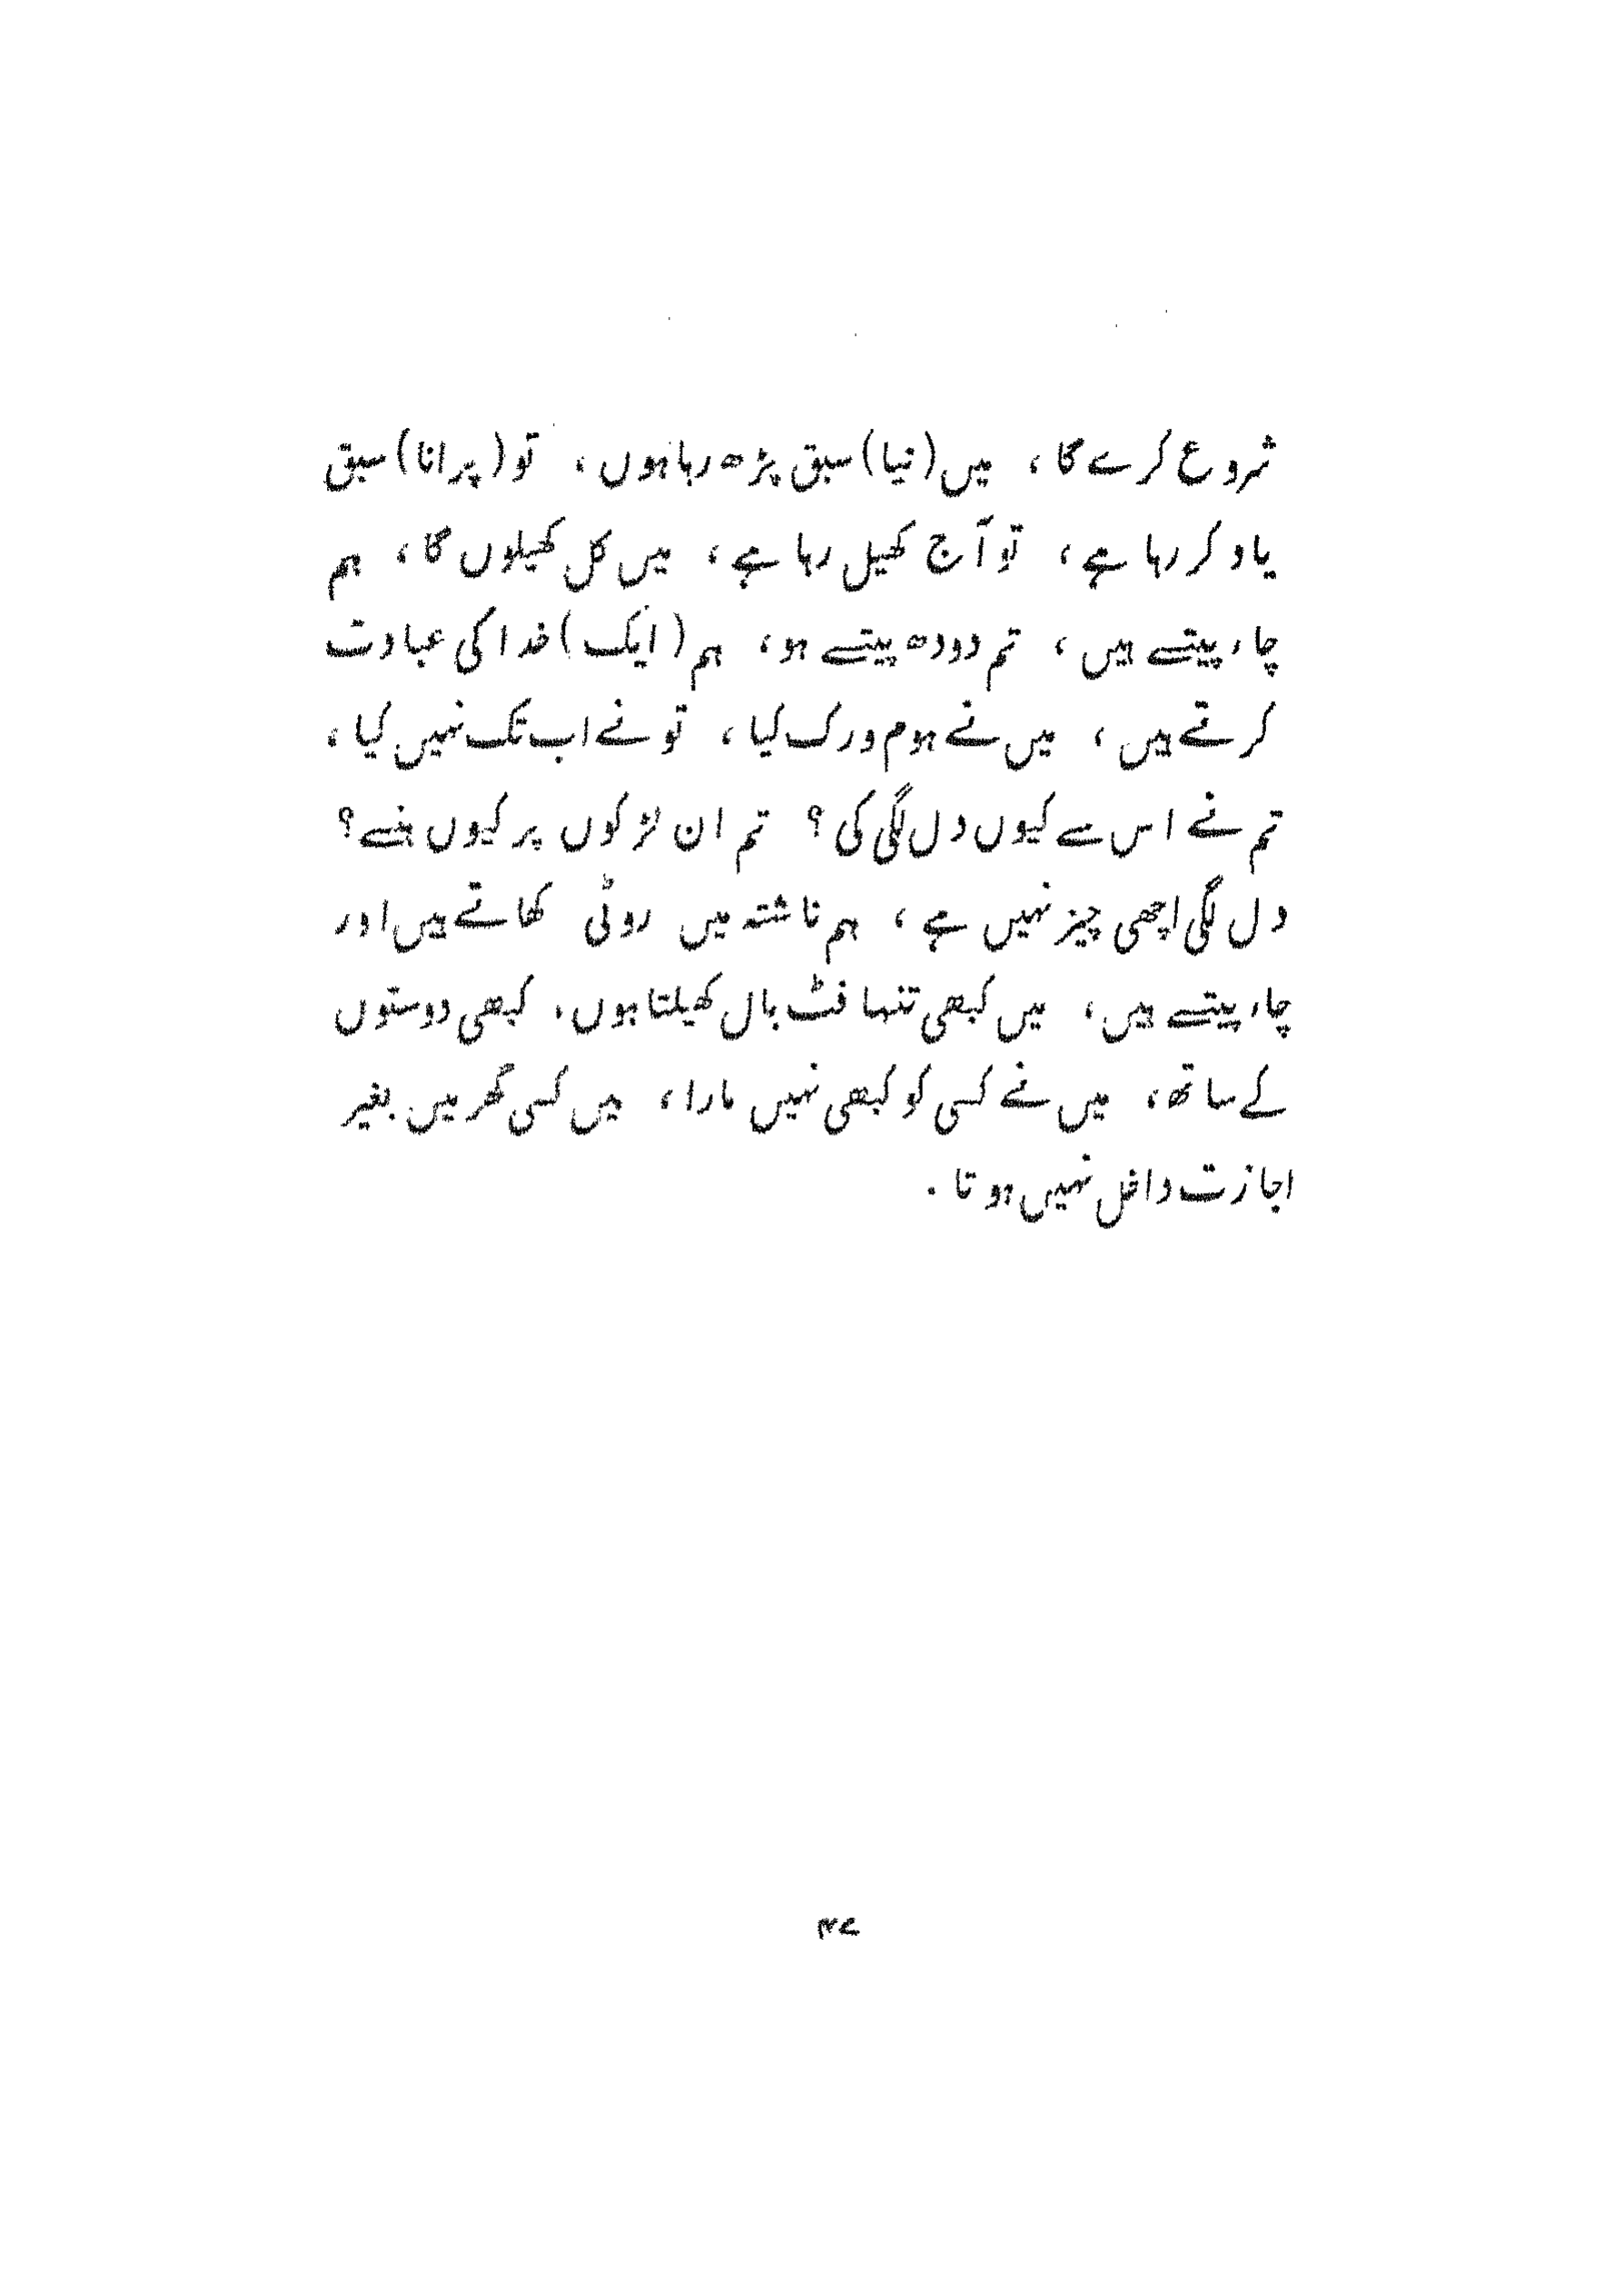 شروع کرے گا، میں (نیا) سبق پڑھ رہا ہوں، تو (پرانا) سبق
یاد کر رہا ہے، تو آج کھیل رہا ہے، میں کل کھیلوں گا، ہم
چاء پیتے ہیں، تم دودھ پیتے ہو، ہم (ایک) خدا کی عبادت
کرتے ہیں، میں نے ہوم ورک کیا، تو نے اب تک نہیں کیا،
تم نے اس سے کیوں دل لگی کی؟ تم ان لڑکوں پر کیوں ہنسے؟
دل لگی اچھی چیز نہیں ہے، ہم ناشتہ میں روٹی کھاتے ہیں اور
چاء پیتے ہیں، میں کبھی تنہا فٹ بال کھیلتا ہوں، کبھی دوستوں
کے ساتھ، میں نے کسی کو کبھی نہیں مارا، میں کسی گھر میں بغیر
اجازت داخل نہیں ہوتا۔